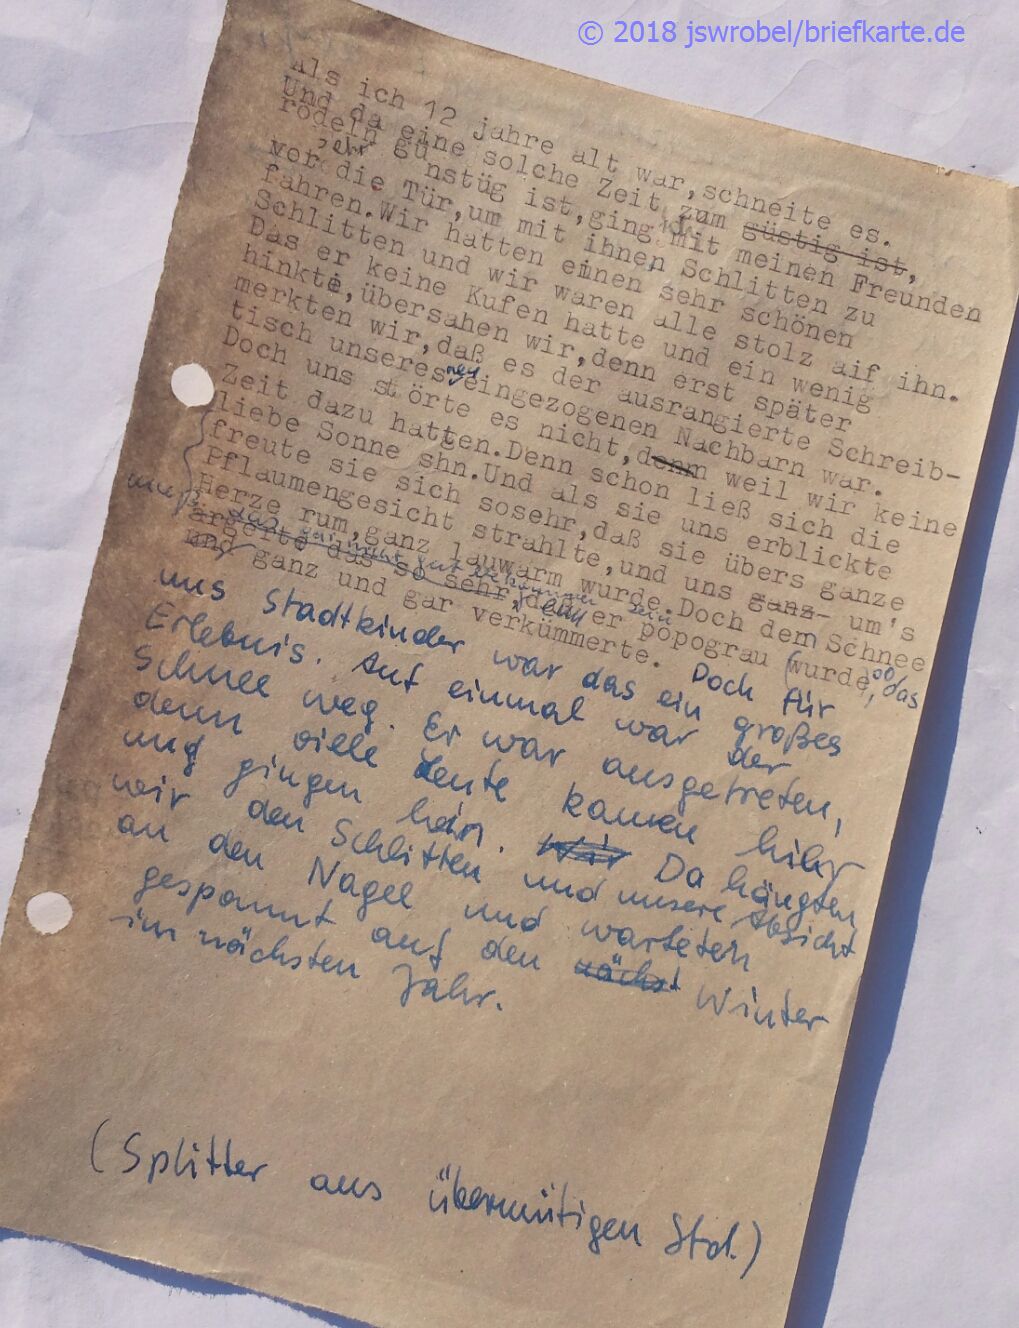 © 2018 jswrobel/briefkarte.de
Als ich 12 jahre alt war,schneite es.
Und da eine solche Zeit zum güstig ist,
rodeln gü nstüg ist,ging mit meinen Freunden
sehr
vor die Tür,um mit ihnen Schlitten zu
fahren.Wir hatten einen sehr schönen
Schlitten und wir waren alle stolz aif ihn.
Das er keine Kufen hatte und ein wenig
hinkte,übersahen wir,denn erst später
merkten wir,daß es der ausrangierte Schreib-
tisch unseres neu eingezogenen Nachbarn war.
Doch uns störte es nicht,denn weil wir keine
Zeit dazu hatten.Denn schon ließ sich die
liebe Sonne shn.Und als sie uns erblickte
freute sie sich sosehr,daß sie übers ganze
Pflaumengesicht strahlte,und uns ganz- um's
Herze rum,ganz lauwarm wurde.Doch dem Schnee
muß das gar nicht gut bekommen sein
ärgerte das so sehr,denn er popograu wurde, das
und ganz und gar verkümmerte. Doch für
uns Stadtkinder war das ein großes
Erlebnis. Auf einmal war der
Schnee weg. Er war ausgetreten,
denn viele Leute kamen hier
und gingen hin. Wir Da hängten
wir den Schlitten und unsere Absicht
an den Nagel und warteten
gespannt auf den nächst Winter
im nächsten Jahr.
(Splitter aus übermütigen Std.)